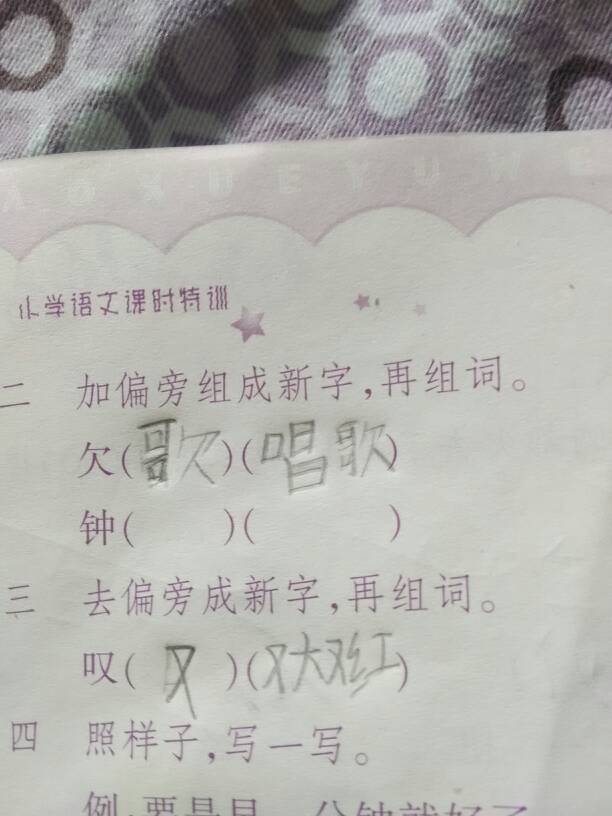 XUEYUW
小学语文课时特训
二 加偏旁组成新字,再组词。
欠(歌)(唱歌)
钟( )( )
三 去偏旁成新字,再组词。
叹(又)(又大又红)
四 照样子,写一写。